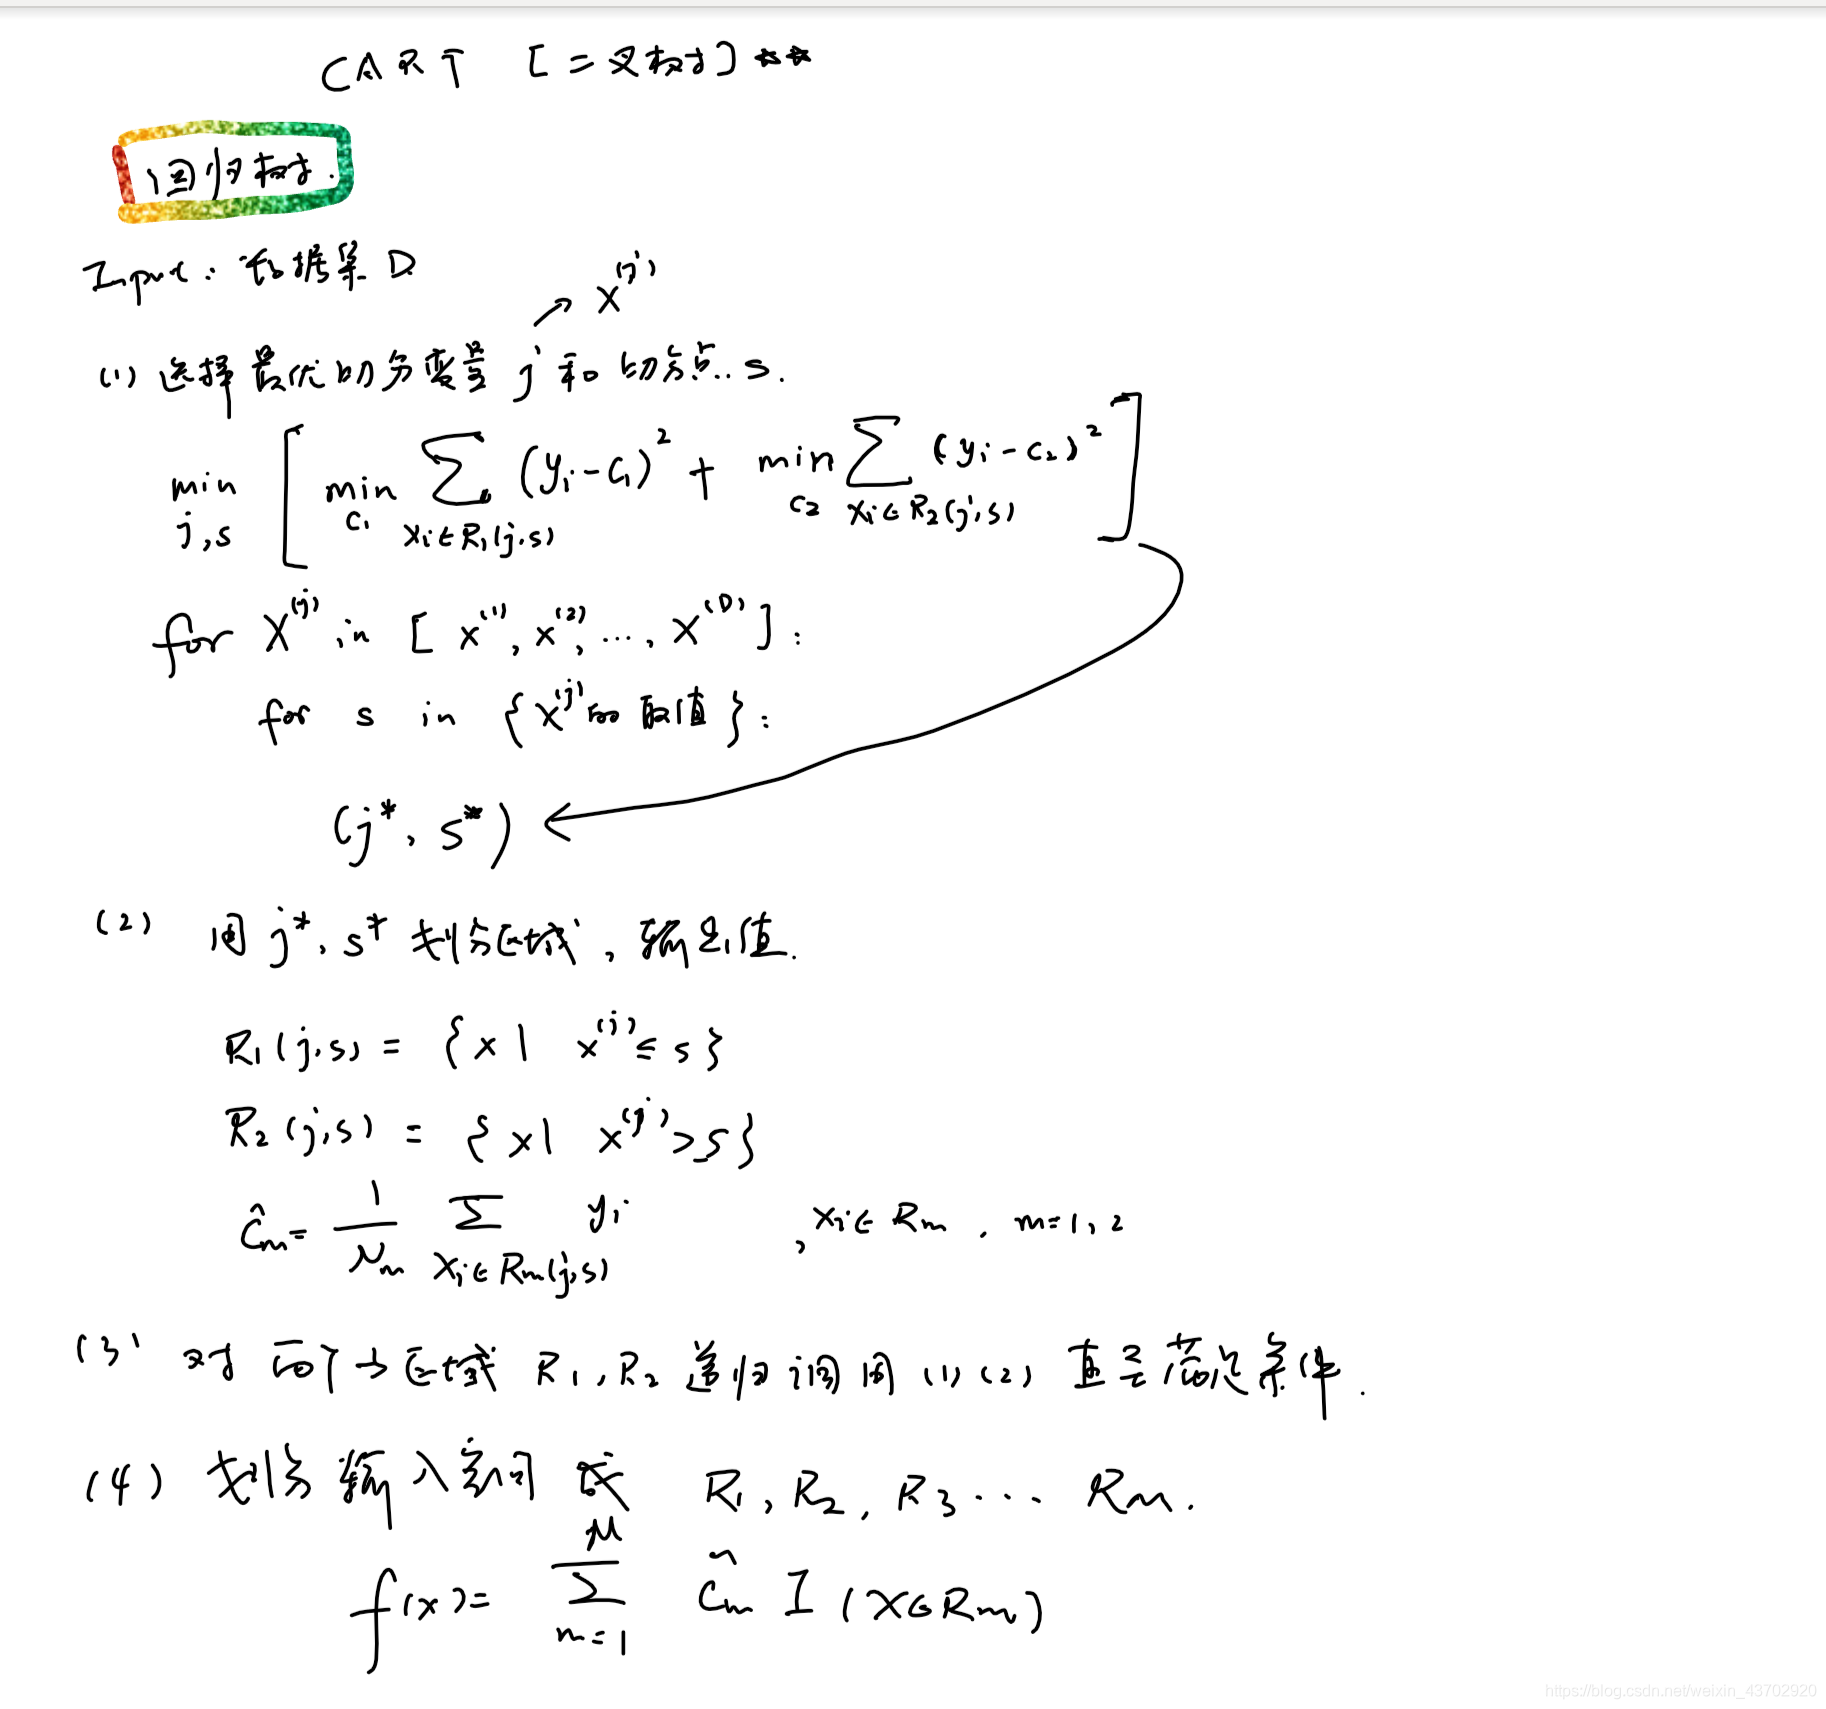 CART [二叉树] **
回归树.
Input: 数据集 D
x^(j)
(1) 选择最优切分变量 j 和切分点 s.
min_{j,s} [ min_{c₁} Σ_{xᵢ∈R₁(j,s)} (yᵢ-c₁)² + min_{c₂} Σ_{xᵢ∈R₂(j,s)} (yᵢ-c₂)² ]
for x^(j) in [ x^(1), x^(2), ..., x^(D) ]:
for s in {x^(j)的取值}:
(j*, s*)
(2) 用 j*, s* 划分区域, 输出值.
R₁(j,s) = {x | x^(j) ≤ s}
R₂(j,s) = {x | x^(j) > s}
ĉₘ = 1/Nₘ Σ_{xᵢ∈Rₘ(j,s)} yᵢ , xᵢ∈Rₘ, m=1,2
(3) 对两个子区域 R₁,R₂ 递归调用 (1)(2) 直至满足条件.
(4) 划分输入空间成 R₁, R₂, R₃ ... Rₘ.
f(x) = Σ_{m=1}^{M} ĉₘ I (x∈Rₘ)
https://blog.csdn.net/weixin_43702920